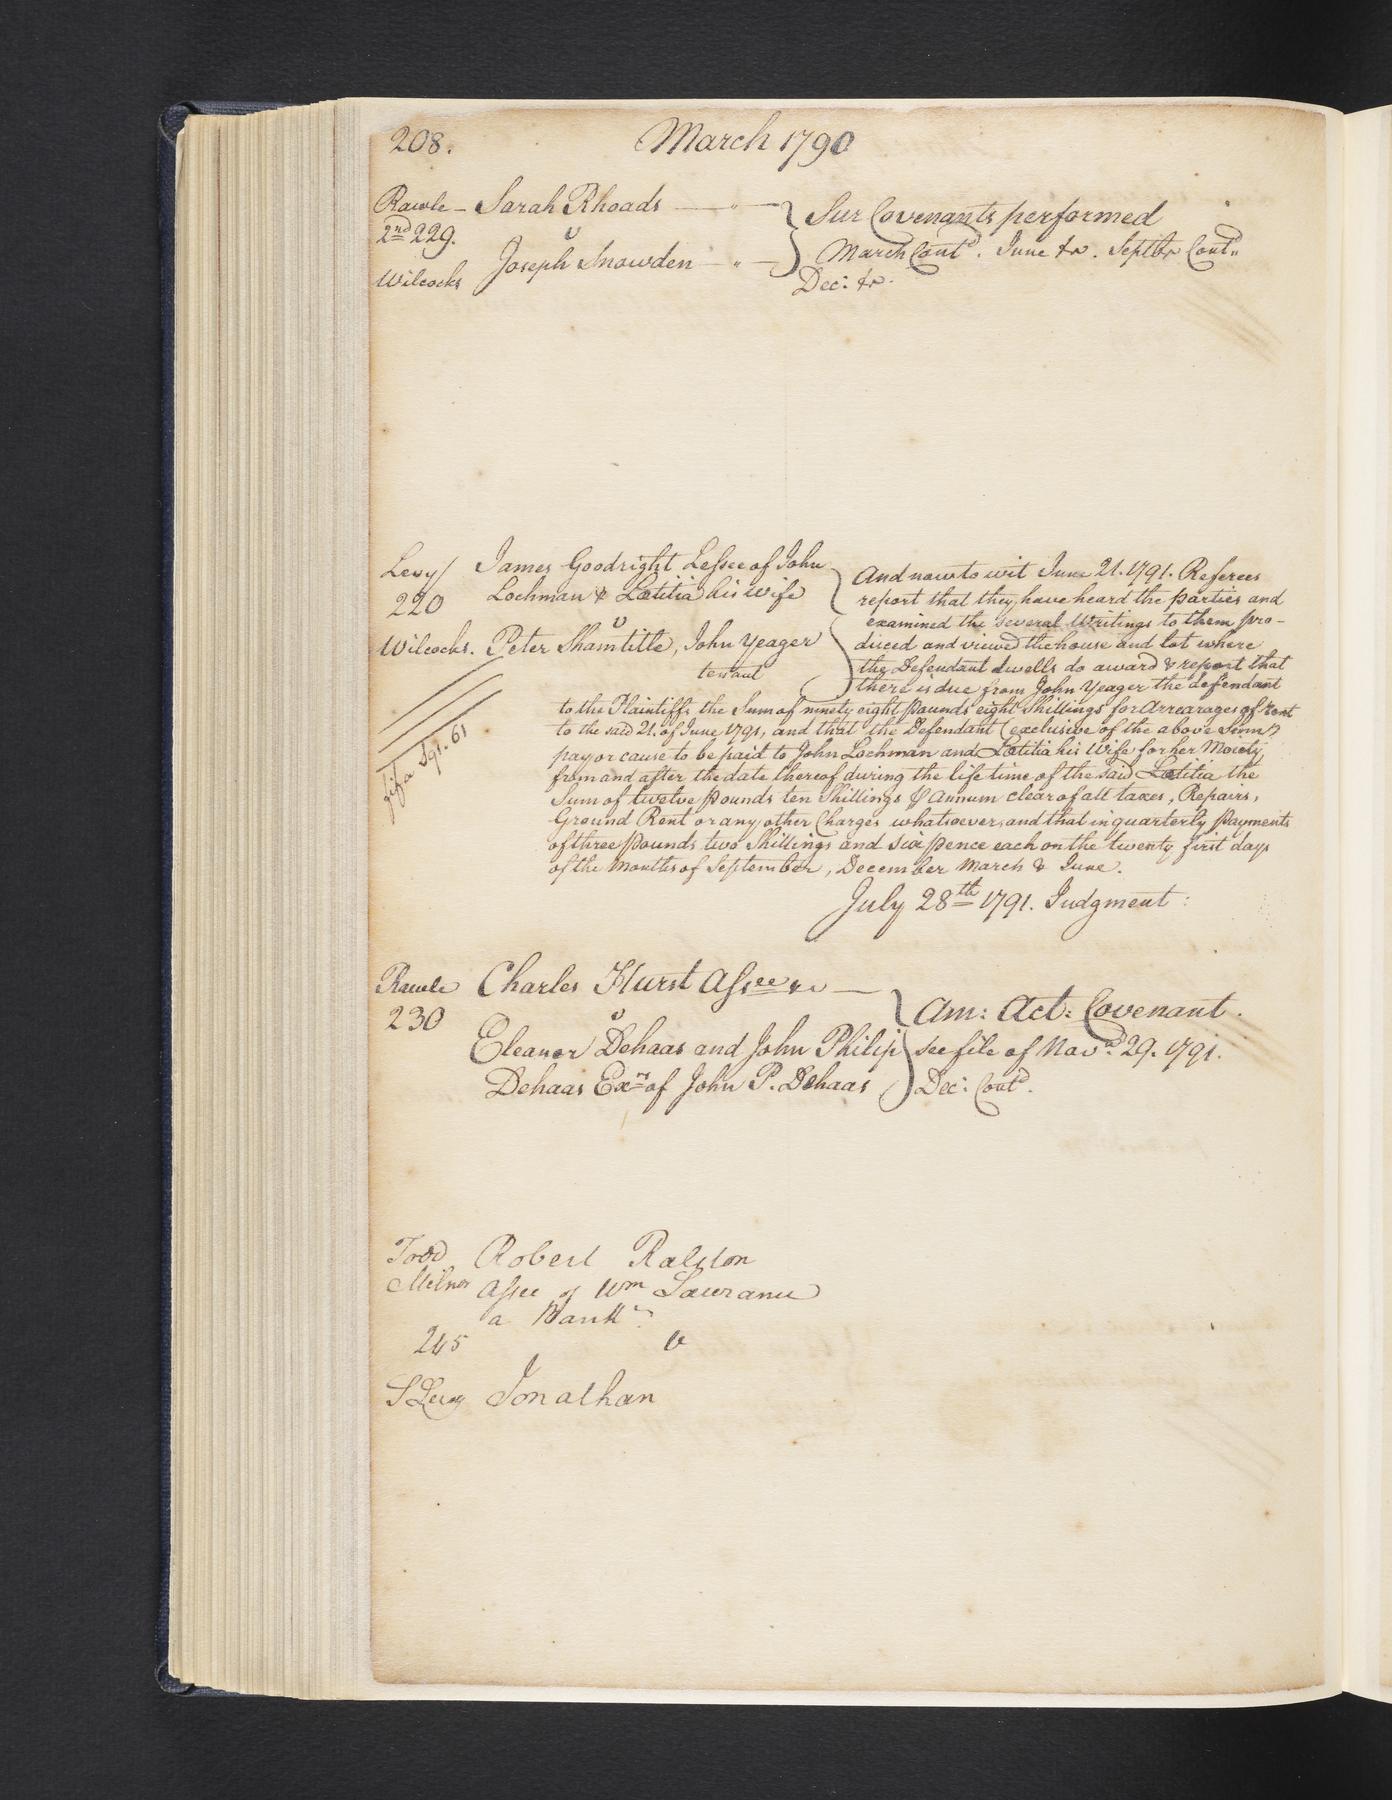 208. March 1790
Rawle - Sarah Rhoads Sur Covenants performed
2nd 229. v March Contd. June &c. Septbr Contd
Wilcocks Joseph Snowden Dec: &c.
Levy James Goodright Lessee of John
220 Lochman & Lætitia his wife
v
Wilcocks. Peter Shamtitle, John Yeager
tenant
And now to wit June 21. 1791. Referees
report that they have heard the parties and
examined the several Writings to them pro-
duced and viewed the house and lot where
the Defendant dwells do award & report that
there is due from John Yeager the defendant
to the Plaintiffs the Sum of ninety eight pounds eight Shillings for Arrearages of rent
to the said 21. of June 1791, and that the Defendant (exclusive of the above Sum)
pay or cause to be paid to John Lochman and Lætitia his Wife for her Moiety
from and after the date thereof during the life time of the said Lætitia the
Sum of twelve pounds ten Shillings ⅌ Annum clear of all taxes, Repairs,
Ground Rent or any other Charges whatsoever, and that in quarterly payments
of three pounds two Shillings and Six pence each on the twenty first days
of the Months of September, December March & June.
fifa S 91. 61
July 28th 1791. Judgment:
Rawle Charles Hurst Assee &c
230 v Am: Act: Covenant.
Eleanor Dehaas and John Philip see file of Nar. 29. 1791.
Dehaas Exrs of John P. Dehaas Dec: Contd.
Todd Robert Ralston
Milnor Assee of Wm
a Bankt
245 v
S Levy Jonathan